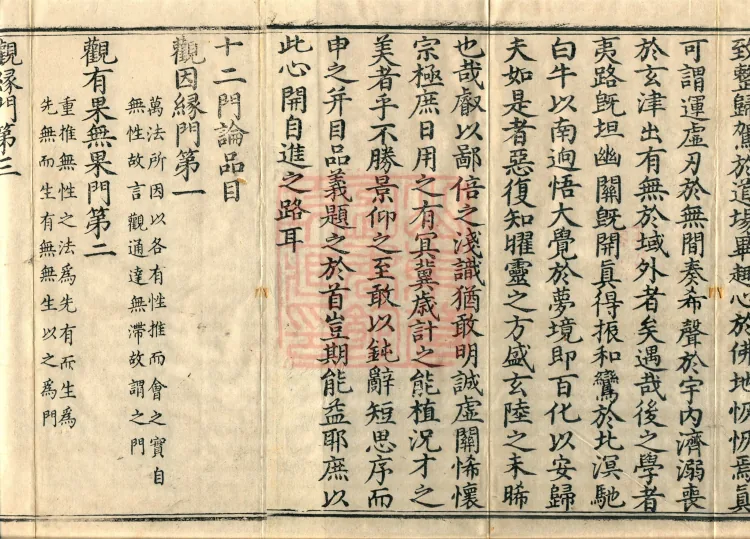 致整歸駕於道場畢趣心於佛地恢恢焉眞
可謂運虛刃於無間奏希聲於宇內濟溺喪
於玄津出有無於域外者矣遇哉後之學者
夷路旣坦幽關旣開眞得振和鸞於北溟馳
白牛以南迴悟大覺於夢境即百化以安歸
夫如是者惡復知曜靈之方盛玄陸之未晞
也哉叡以鄙倍之淺識猶敢明誠虛關悕懷
宗極庶日用之有冥冀歲計之能植況才之
美者乎不勝景仰之至敢以鈍辭短思序而
申之并目品義題之於首豈期能益耶庶以
此心開自進之路耳
十二門論品目
觀因緣門第一
萬法所因以各有性推而會之實自
無性故言觀通達無滯故謂之門
觀有果無果門第二
重推無性之法爲先有而生爲
先無而生有無無生以之爲門
觀緣門第三